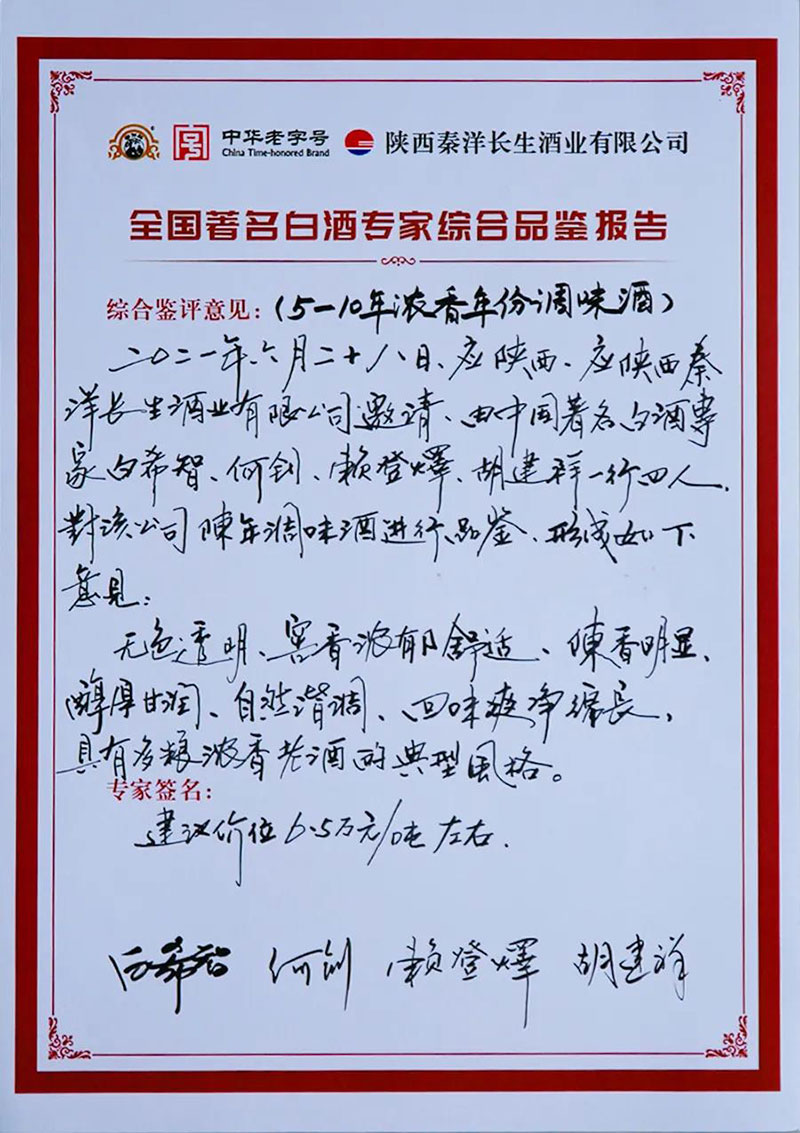 中华老字号
China Time-honored Brand
陕西秦洋长生酒业有限公司
全国著名白酒专家综合品鉴报告
综合鉴评意见：（5—10年浓香年份调味酒）
二〇二一年六月二十八日、应陕西、应陕西秦
洋长生酒业有限公司邀请、由中国著名白酒專
家白希智、何剑、赖登燡、胡建祥一行四人、
對该公司陳年调味酒进行品鉴、形成如下
意见：
无色透明、窖香浓郁舒适、陳香明显、
醇厚甘润、自然谐调、回味爽净绵长、
具有多粮浓香老酒的典型风格。
专家签名：
建议价位6.5万元/吨左右.
白希智 何剑 赖登燡 胡建祥